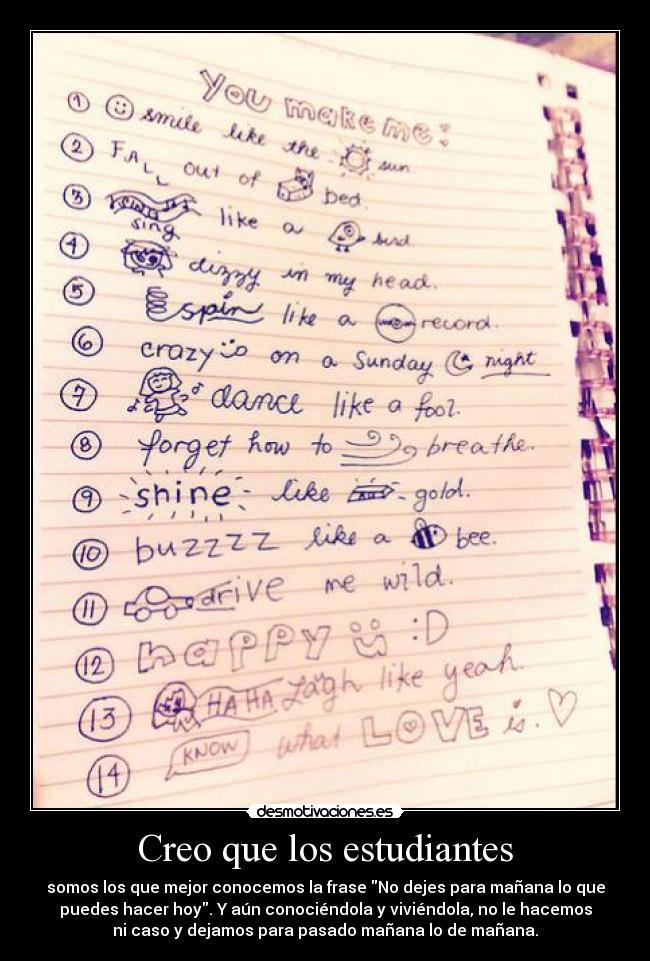 You make me:
1 smile like the sun
2 FALL out of bed.
3 sing like a bird
4 dizzy in my head.
5 spin like a record.
6 crazy on a Sunday night
7 dance like a fool.
8 forget how to breathe.
9 shine like gold.
10 buzzzz like a bee.
11 drive me wild.
12 happy :D
13 HA HA Laugh like yeah.
14 KNOW what LOVE is.
desmotivaciones.es
Creo que los estudiantes
somos los que mejor conocemos la frase "No dejes para mañana lo que
puedes hacer hoy". Y aún conociéndola y viviéndola, no le hacemos
ni caso y dejamos para pasado mañana lo de mañana.